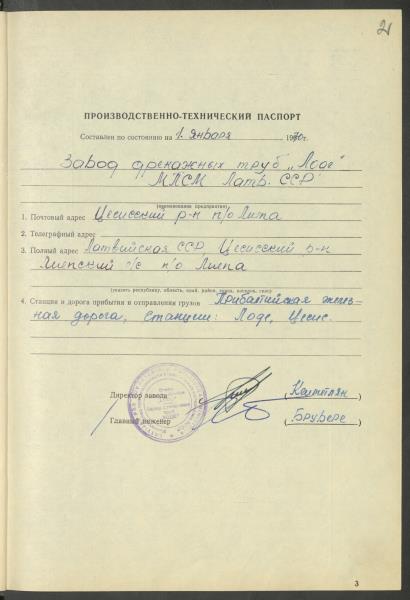 21
ПРОИЗВОДСТВЕННО-ТЕХНИЧЕСКИЙ ПАСПОРТ
Составлен по состоянию на 1. января 1970г.
Завод дренажных труб „Лоде"
МПСМ Латв. ССР
(наименование предприятия)
1. Почтовый адрес Цесисский р-н п/о Лиепа
2. Телеграфный адрес
3. Полный адрес Латвийская ССР Цесисский р-н
с/с п/о Лиепа
(указать республику, область, край, район, город, поселок, улицу)
4. Станция и дорога прибытия и отправления грузов Прибалтийская желез-
ная дорога, станции: Лоде, Цесис.
Директор завода
Главный инженер (Брувере)
3